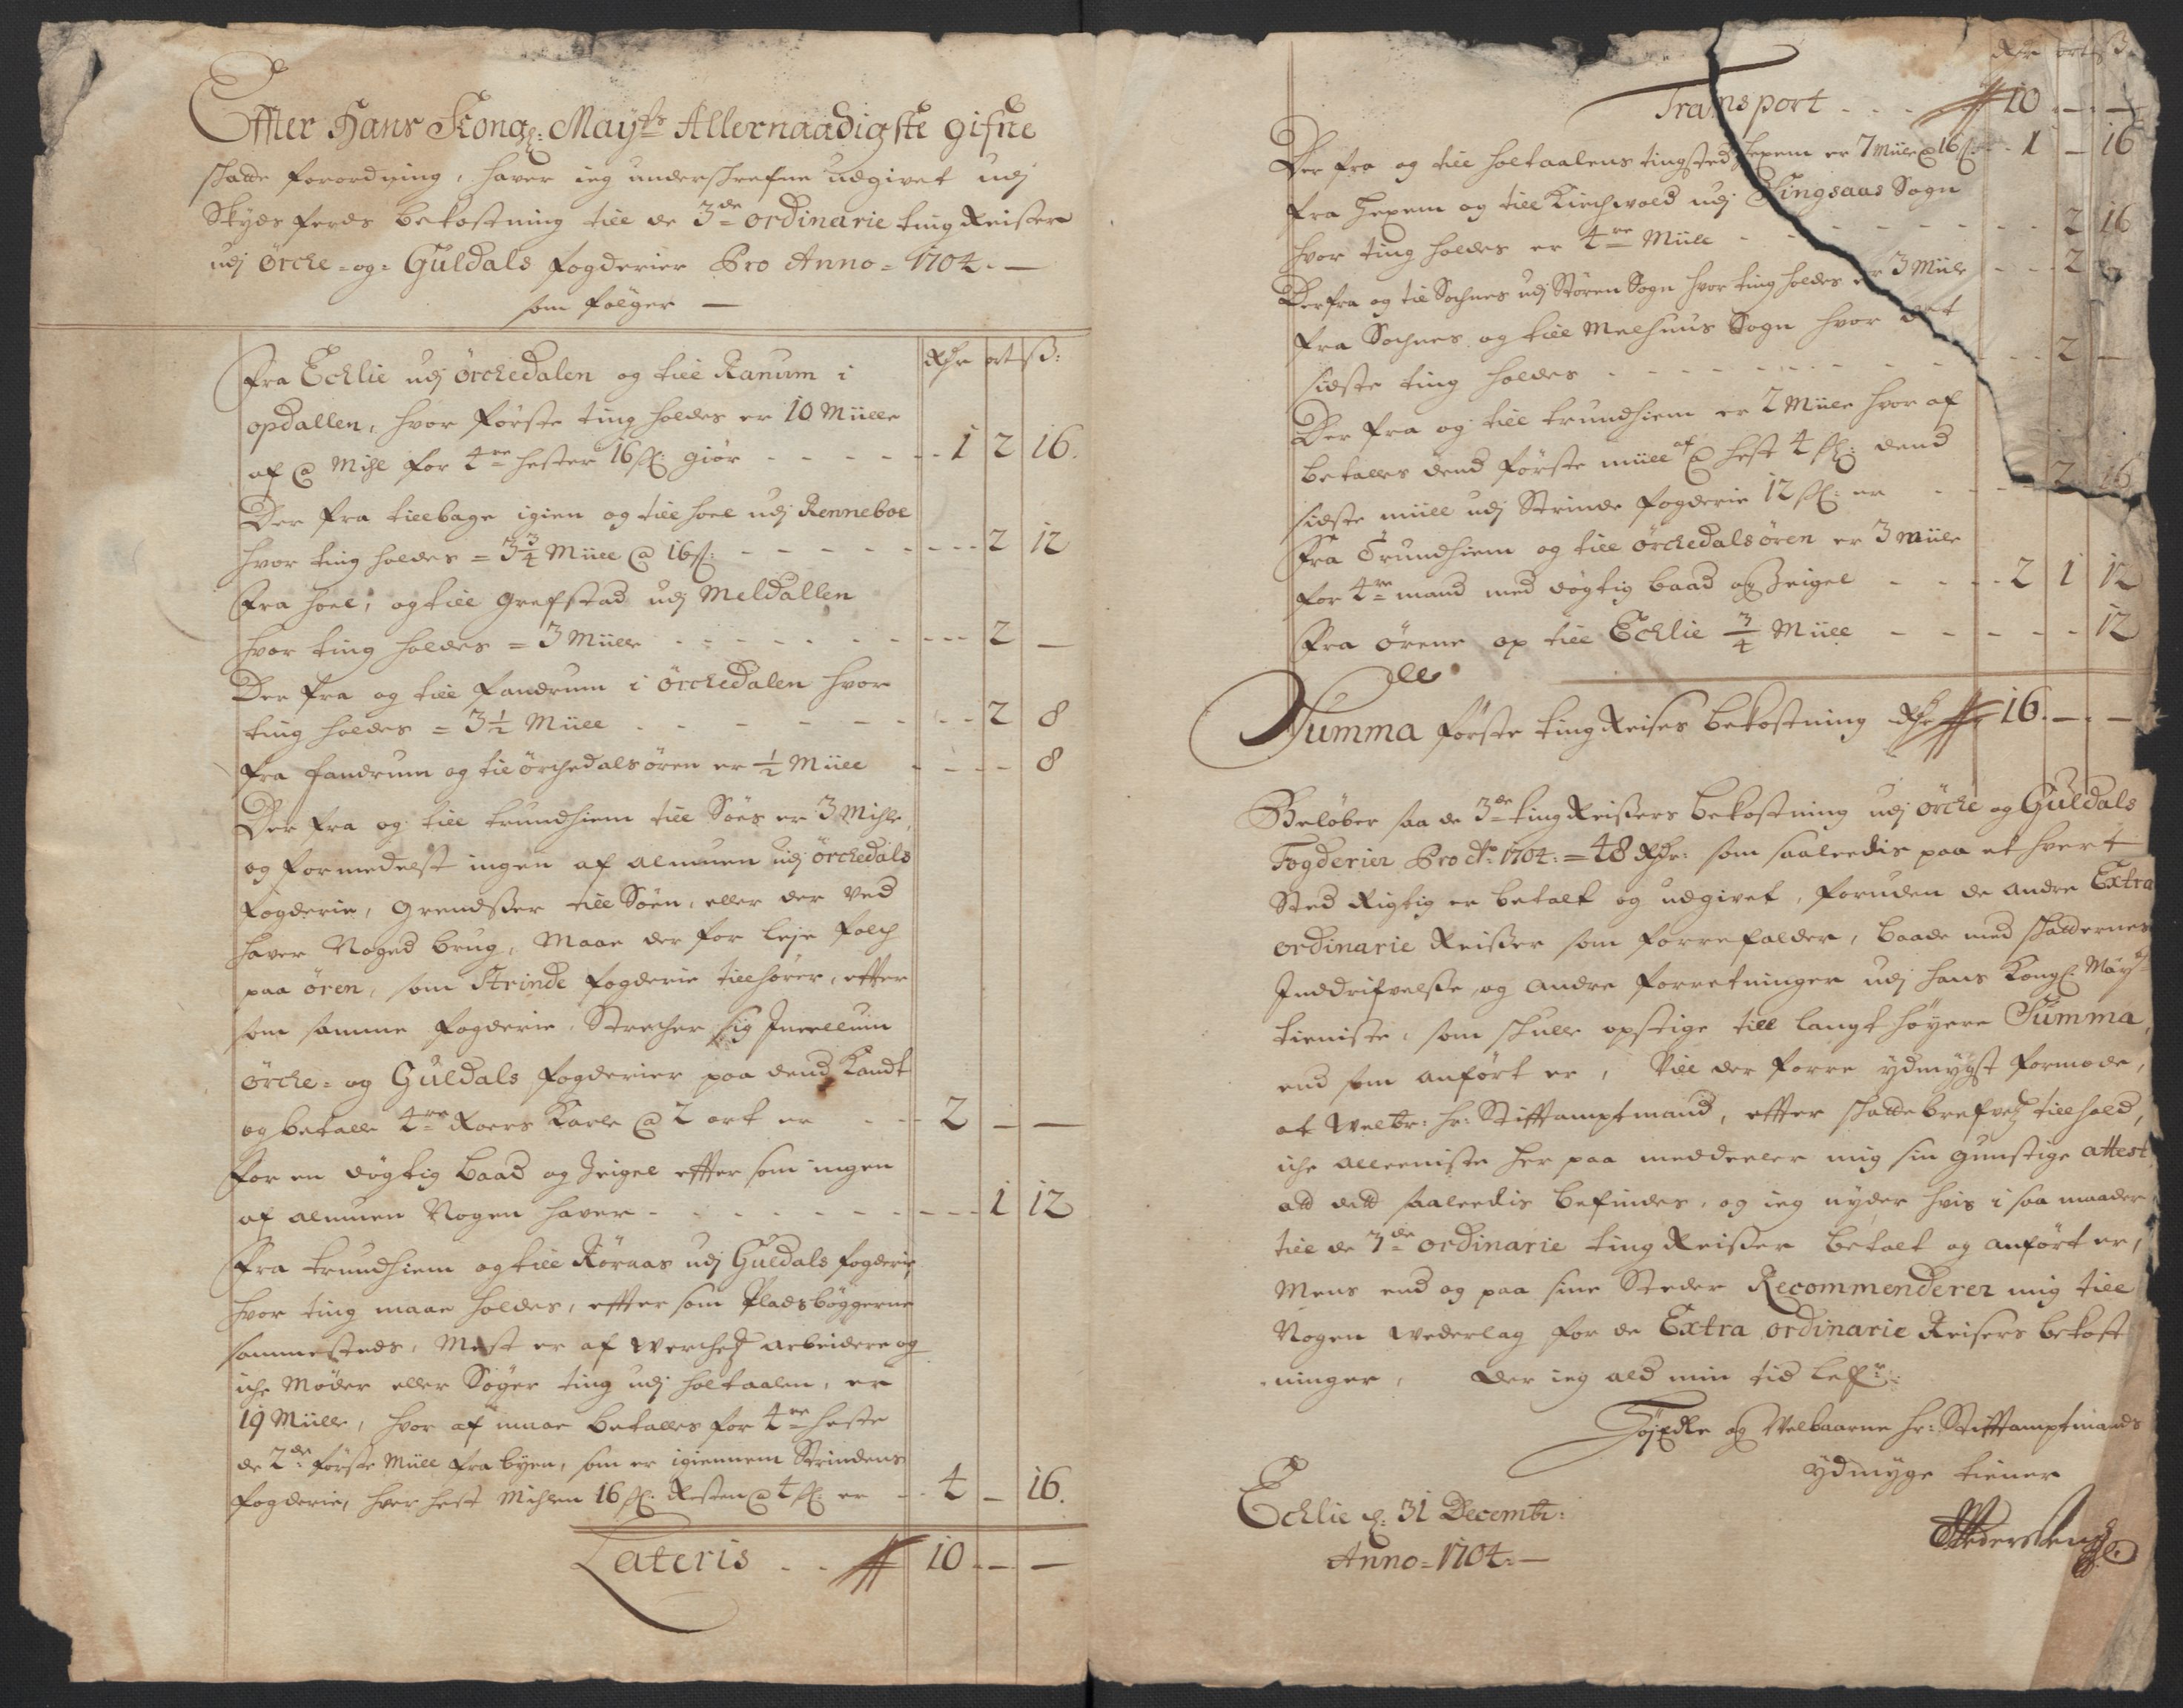 Effter Hans Kong: May:ts Allernaadigste gifne
skatte forordning, hafver ieg underskrefne udgivet udj
Skyds ferds bekostning till de 3de ordinarie ting Reiser
udj Örcke- og Guldals fogderier Pro Anno = 1704.—
som fölger —
Rdr ort ß:
Fra Ecklie udj Örckedalen og till Ranum i
opdallen, hvor förste ting holdes er 10 Miille
af @ Mihl for 4re hester 16 ß: giör - - - - 1 2 16.
Der fra tillbage igien og till hoel udj Renneboe
hvor ting holdes = 3¾ Miill @ 16 ß: - - - - 2 12
Fra hoel, og till Grefstad udj Meldallen
hvor ting holdes = 3 Miille - - - - 2 —
Der fra og till fandrum i Örckedalen hvor
ting holdes = 3½ Miill - - - - 2 8
fra fandrum og til örchedalsören er ½ Miill - - - - 8
Der fra og till trundhiem till Söes er 3 Mihle,
og formedelst ingen af almuen udj örckedals
fogderie, grendsser till Söen, eller der ved
hafver Noged brug, Maae der for leje folch
paa ören, som Strinde fogderie tillhörer, effter
som samme fogderie, Strecher sig Imellum
örcke- og Guldals fogderier paa dend Kandt
og betalle 4re Roers Karle @ 2 ort er - - 2 — —
For en dögtig baad og Seigel effter som ingen
af almuen Nogen hafver - - - - 1 12
Fra trundhiem og till Röraas udj Guldals fogderie,
hvor ting maae holdes, effter som Pladsbyggerne
sammesteds, Mest er af werchetz arbeidere og
iche Möder eller Söger ting udj holtaalen, er
19 Miille, hvor af maae betalles for 4re heste
de 2de förste Miill fra byen, som er igiennem Strindens
fogderie, hver hest Mihlen 16 ß: Resten @ 4 ß: er - - 4 — 16.
Lateris - - 10 — —
Rdr ort ß
Transport - - - 10 — —
Der fra og till holtaalens tingsted, hexem er 7 Miile @ 16 ß: - 1 — 16
fra hexem og till Kirchvold udj Singsaas Sogn
hvor ting holdes er 4re Miill - - - - 2 16
Derfra og til Sochnes udj Stören Sogn hvor ting holdes er 3 Miile - - - 2
fra Sochnes og till Melhuus Sogn hvor det
sidste ting holdes - - - - 2 —
Der fra og till trundhiem er 2 Miile hvor af
betalles dend förste miill af @ hest 4 ß: dend
sidste miill udj Strinde fogderie 12 ß: er - - - 2 16
Fra Trundhiem og till örckedalsören er 3 miile
for 4re mand med dögtig baad og Seigel - - - 2 1 12
Fra örene op till Ecklie ¾ Miill - - - - 12
Summa förste ting Reises bekostning Rdr 16. — —
Belöber saa de 3de ting Reissers bekostning udj örcke og Guldals
Fogderier Pro Ao: 1704: = 48 Rdr: som saaledis paa et hvert
Sted Rigtig er betalt og udgivet, foruden de andre Extra
ordinarie Reisser som forrefalder, baade med skatternes
Inddrifvelsse, og andre forretninger udj hans Kongl: Mayts
tieniste, som skulle opstige till langt höyere Summa,
end som anfört er, Vill der forre ydmygst formode,
at Welbr: hr: Stiftamptmand, effter skattebrefvetz tillhold,
iche alleeniste her paa meddeeler mig sin gunstige attest
att dett saaledis befindes, og ieg nyder hvis i saa maader
till de 3de ordinarie ting Reisser betalt og anfört er,
Mens end og paa sine Steder Recommenderer mig till
Nogen wederlag for de Extra ordinarie Reisers bekost
-ninger, der ieg ald min tid lefr:
Höjedle og Velbaarne hr: Stiftamptmands
ydmyge tiener
Ecklie d: 31 Decembr:
Anno = 1704:—